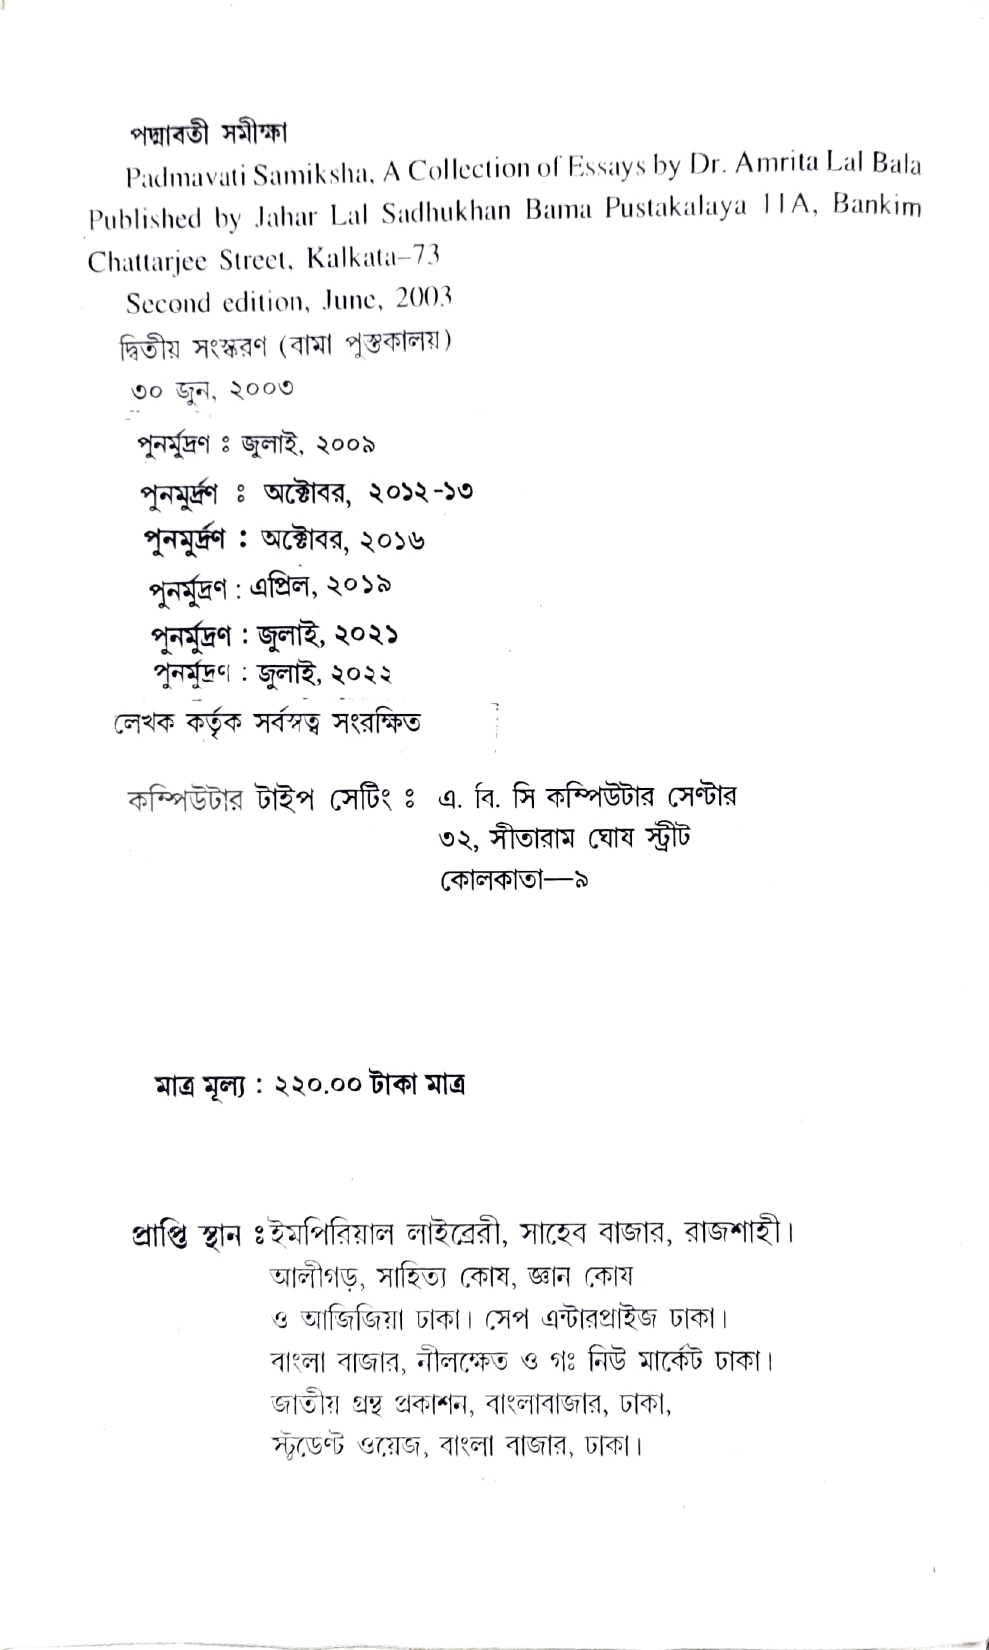 পদ্মাবতী সমীক্ষা
Padmavati Samiksha, A Collection of Essays by Dr. Amrita Lal Bala
Published by Jahar Lal Sadhukhan Bama Pustakalaya 11A, Bankim
Chattarjee Street, Kalkata–73
Second edition, June, 2003
দ্বিতীয় সংস্করণ (বামা পুস্তকালয়)
৩০ জুন, ২০০৩
পুনর্মুদ্রণ ঃ জুলাই, ২০০৯
পুনমুর্দ্রণ ঃ অক্টোবর, ২০১২-১৩
পুনমুর্দ্রণ : অক্টোবর, ২০১৬
পুনর্মুদ্রণ : এপ্রিল, ২০১৯
পুনর্মুদ্রণ : জুলাই, ২০২১
পুনর্মুদ্রণ : জুলাই, ২০২২
লেখক কর্তৃক সর্বস্বত্ব সংরক্ষিত
কম্পিউটার টাইপ সেটিং ঃ এ. বি. সি কম্পিউটার সেণ্টার
৩২, সীতারাম ঘোষ স্ট্রীট
কোলকাতা—৯
মাত্র মূল্য : ২২০.০০ টাকা মাত্র
প্রাপ্তি স্থান ঃ ইমপিরিয়াল লাইব্রেরী, সাহেব বাজার, রাজশাহী।
আলীগড়, সাহিত্য কোষ, জ্ঞান কোষ
ও আজিজিয়া ঢাকা। সেপ এন্টারপ্রাইজ ঢাকা।
বাংলা বাজার, নীলক্ষেত ও গঃ নিউ মার্কেট ঢাকা।
জাতীয় গ্রন্থ প্রকাশন, বাংলাবাজার, ঢাকা,
স্টুডেণ্ট ওয়েজ, বাংলা বাজার, ঢাকা।